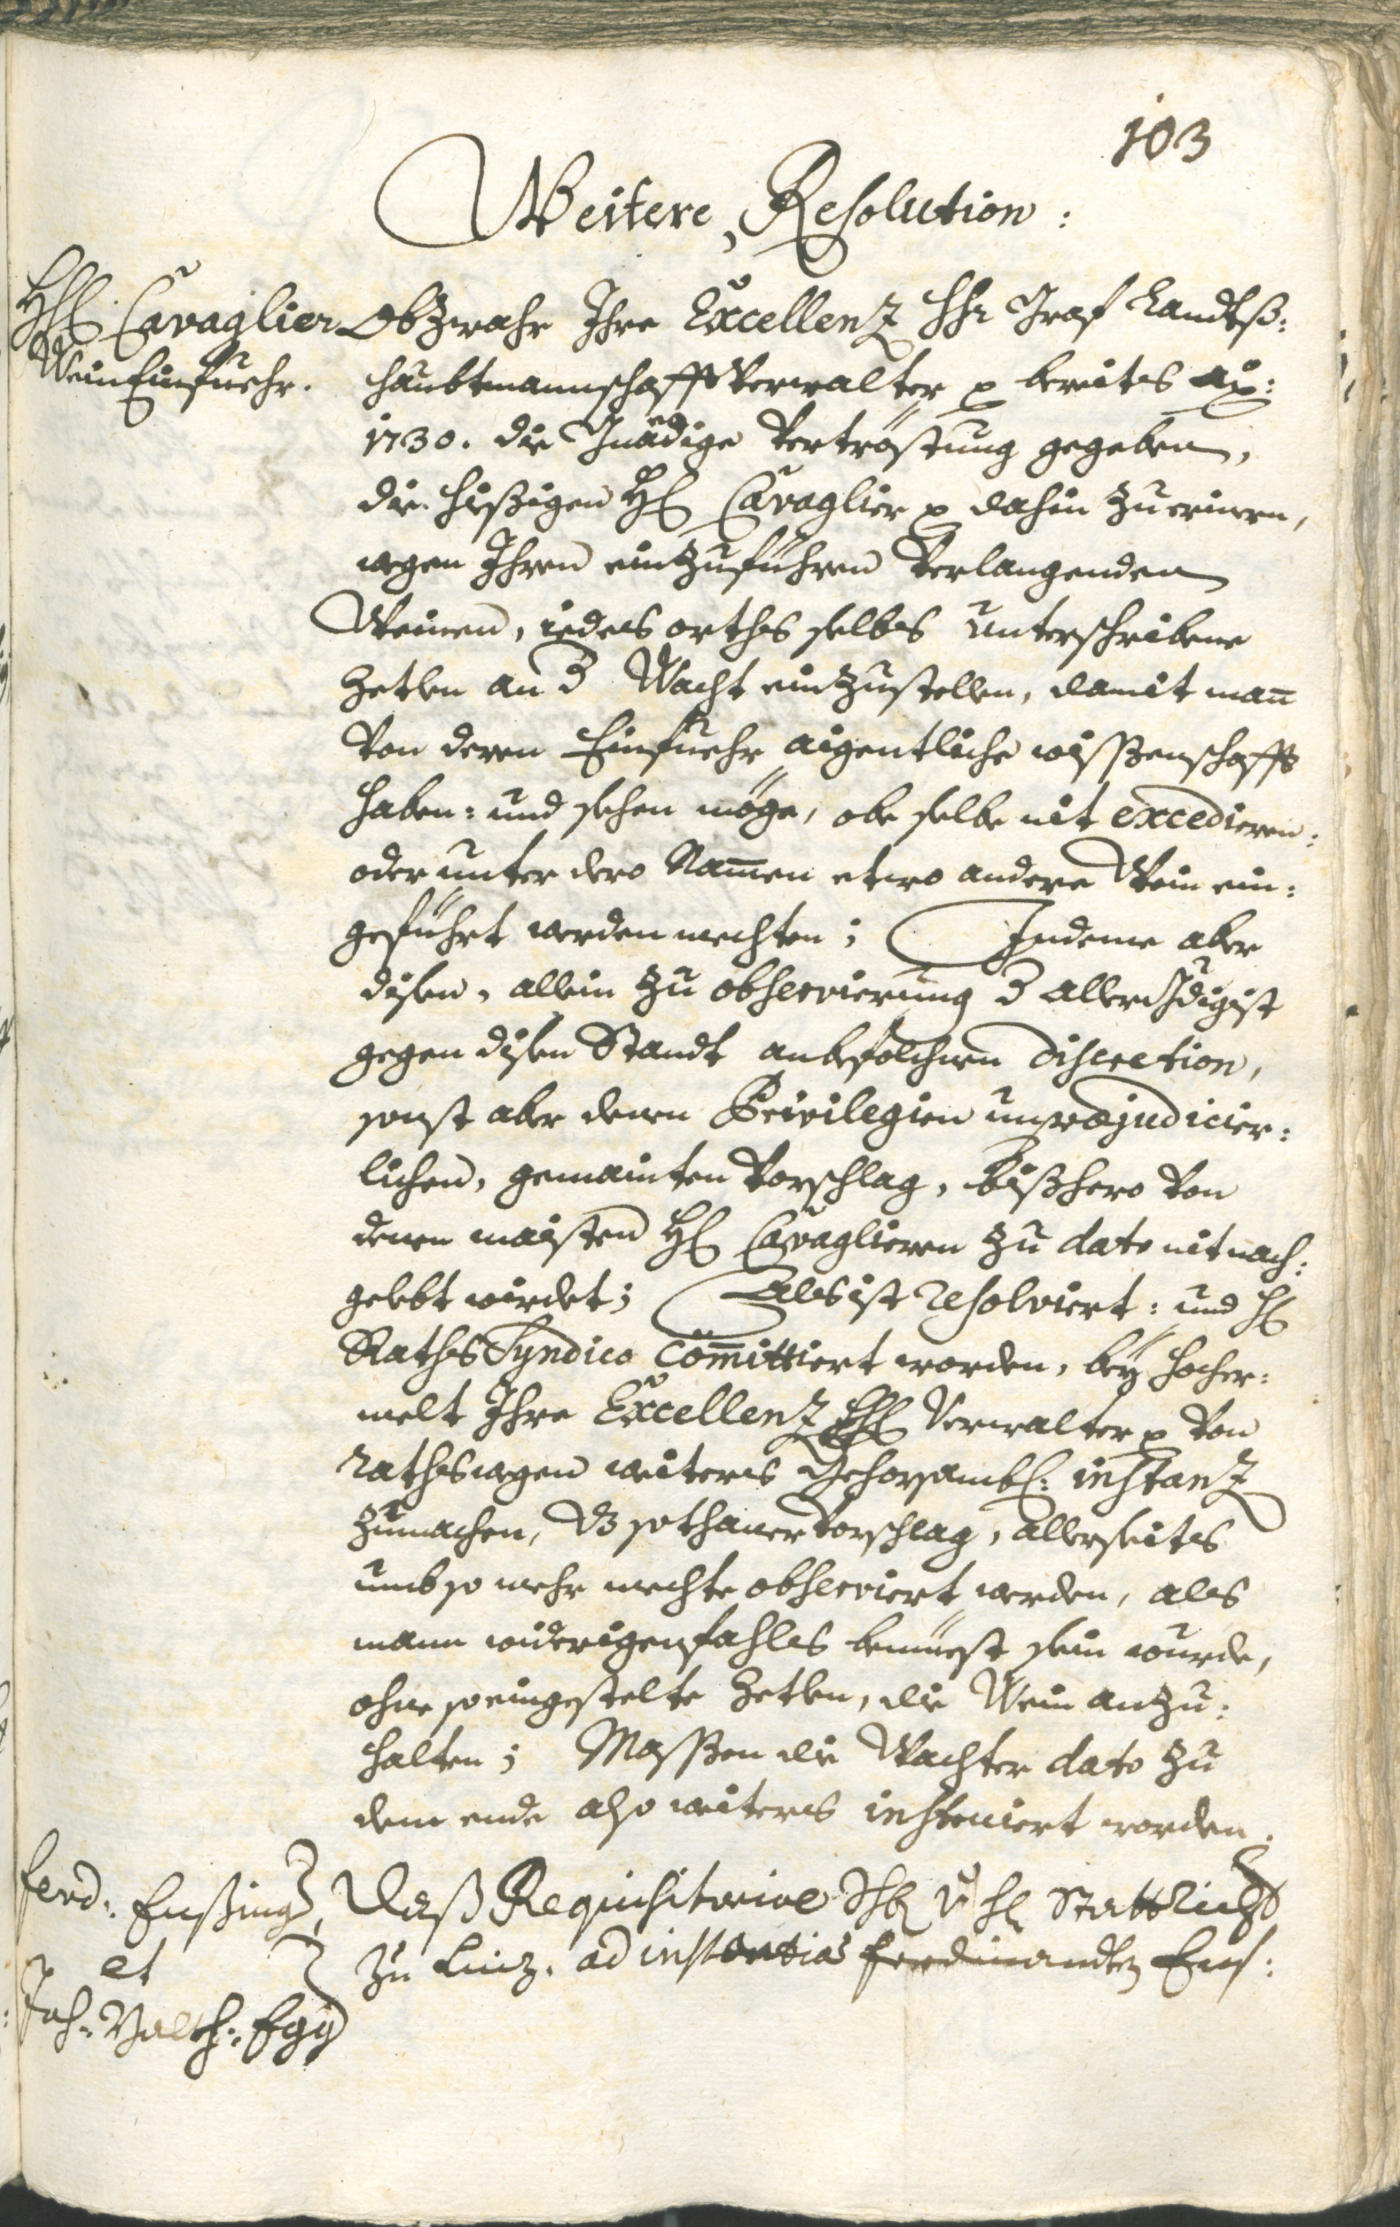 103
Weitere Resolution:
HH: Cavaglier
Wein Einfuehr.
Obzwahr Ihre Excellenz HHr Graf Landtß:
haubtmannschafft Verwalter p bereits aõ:
1730. die Gnädige Vertröstung gegeben,
die hießigen HH Cavaglier p dahin zu erinern,
wegen Ihren einzuführen Verlangenden
Weinen, iedes orths selbs unterschribene
Zetlen an d Wacht einzustellen, damit man̄
Von deren Einfuehr aigentliche wissenschafft
haben: und sehen möge, obe selbe nit excedieren:
oder unter dero Nam̄en etwo andere Wein ein:
geführt werden mechten; Indeme aber
disen, allein zu observierung d allergdigist
gegen disen Standt anbefolchnen discretion,
sonst aber denen Privilegien unpræjudicier:
lichen, gemainten Vorschlag, bißhero Von
denen maisten HH Cavaglieren zu dato nit nach:
gelebt wirdet; Als ist resolviert: und H
Raths Syndico com̄ittiert worden, bey hocher:
melt Ihre Excellenz HH Verwalter p Von
raths wegen weiters Gehorsambl: instanz
zumachen, dz sothaner Vorschlag, allerseits
umb so mehr mechte observiert werden, als
mann widerigenfahls bemüest sein wurde,
ohne so eingestelte Zetlen, die Wein anzu:
halten; Massen die Wachter dato zu
dem ende also weiters instruiert worden.
Ferd: Enßing,
et
Joh: Valth: Egg
Daß Requisitoriale H Stattricht
zu Linz, ad instantias Ferdinandt Ens: